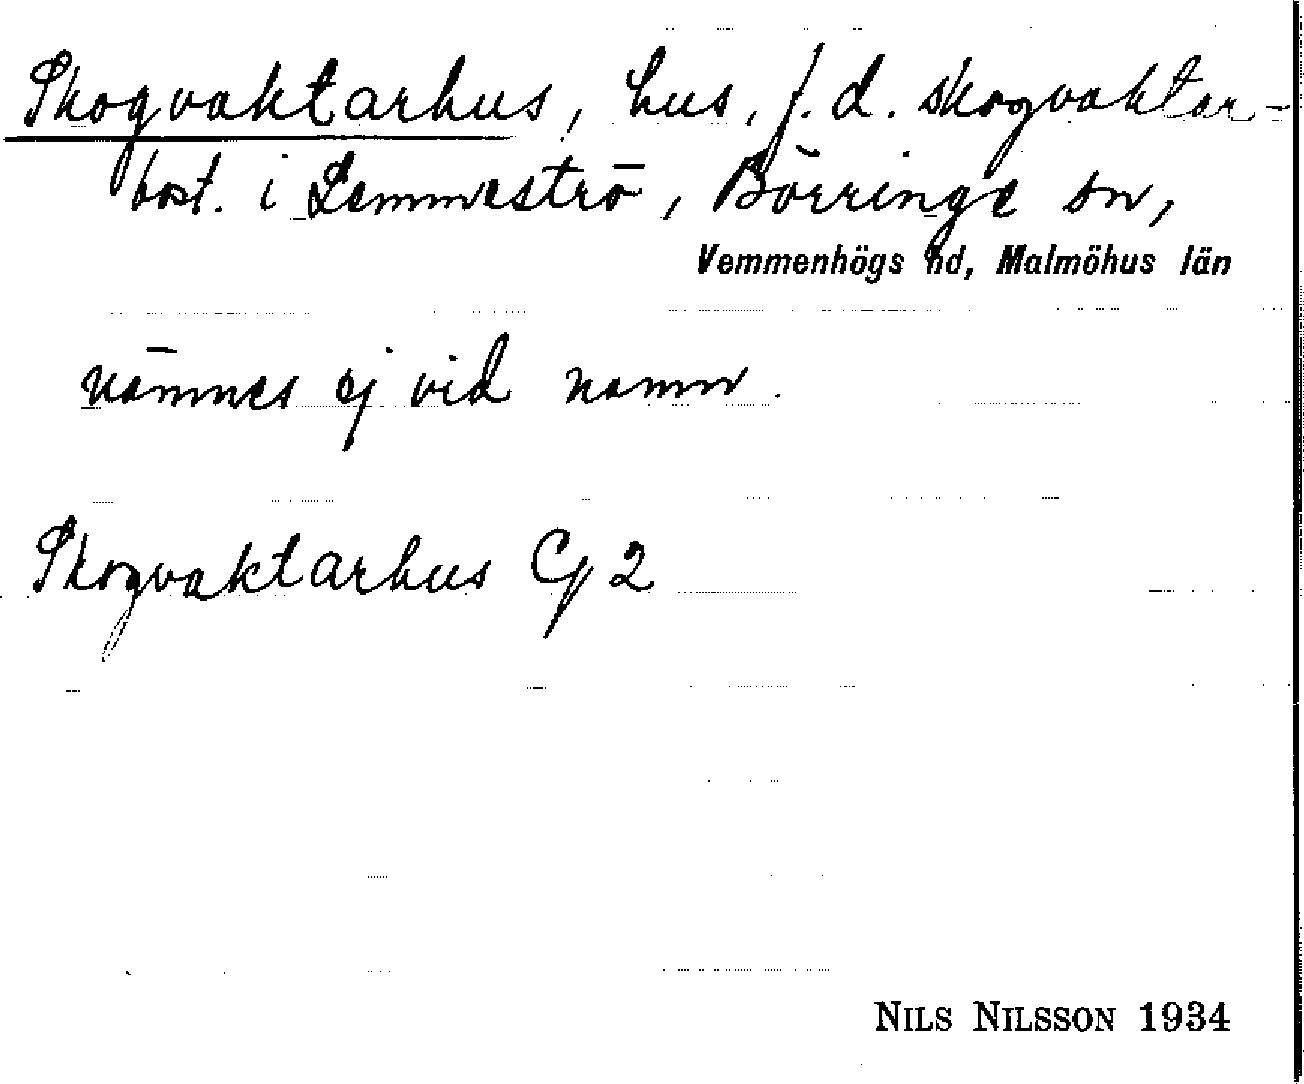 Skogvaktarhus, hus, f.d. skogvaktar-
bost. i Lemmeströ, Börringe sn,
Vemmenhögs hd, Malmöhus län
nämnes ej vid namn.
Skogvaktarhus G 2
NILS NILSSON 1934